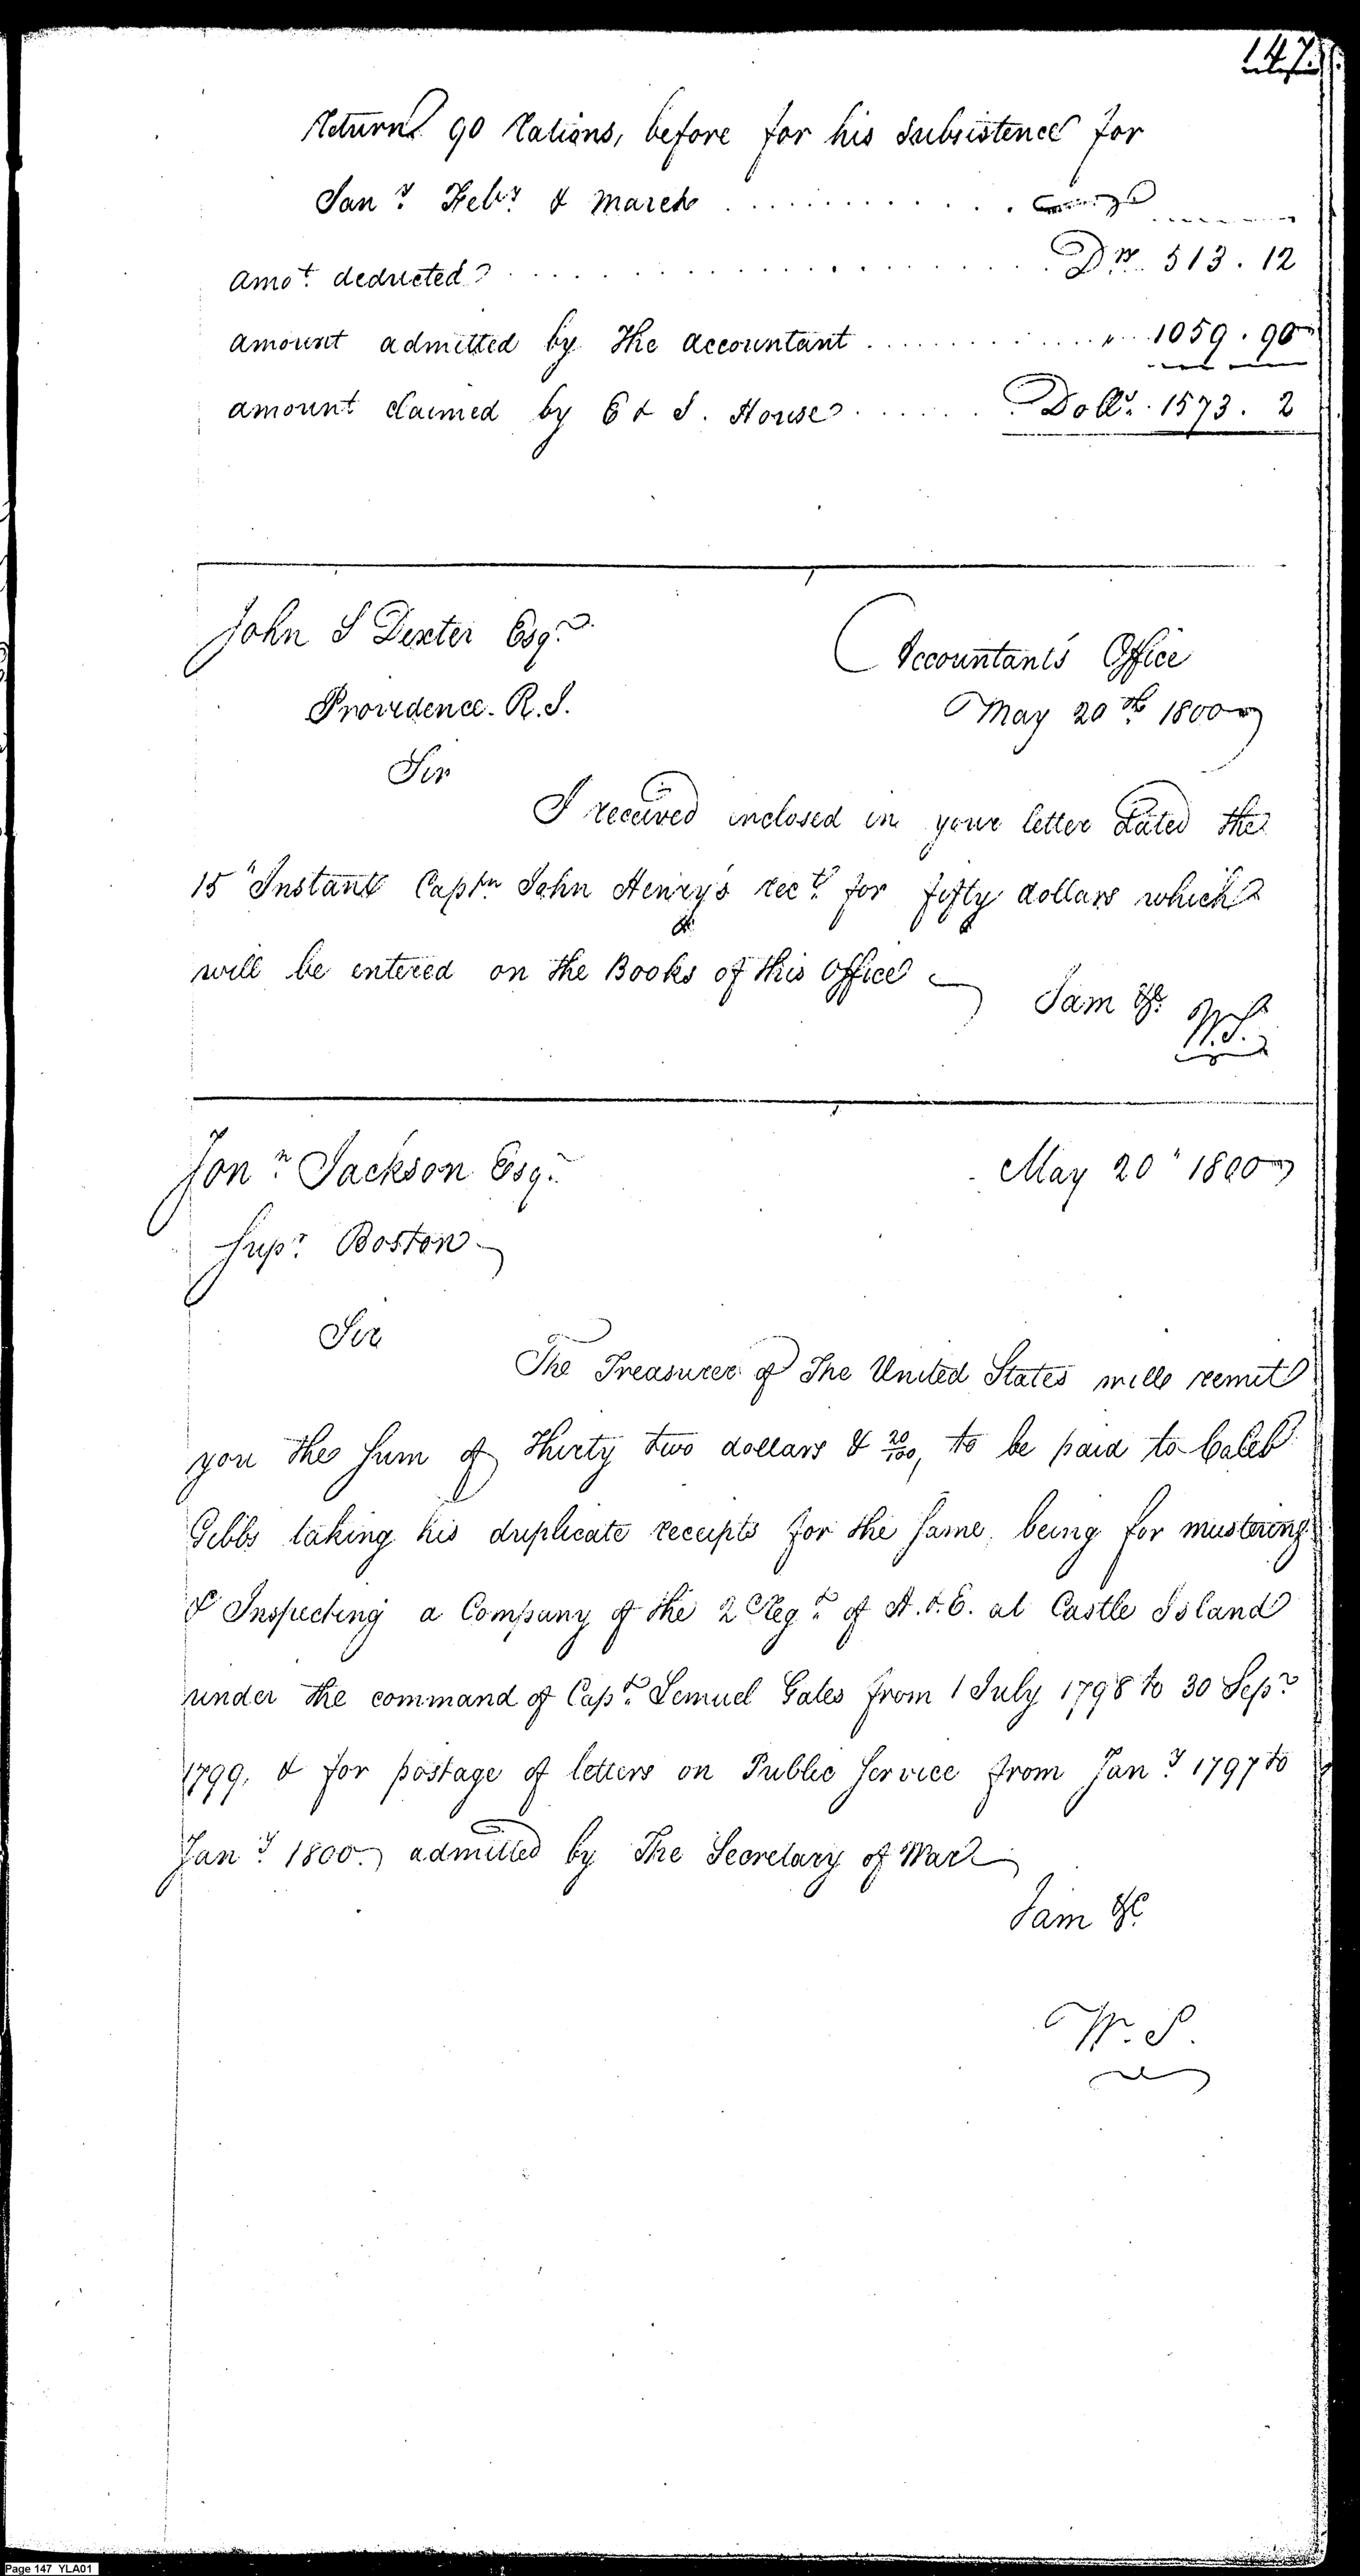 147.
return 90 Rations, before for his subsistence for
Jany. Feby. & March
amot. deducted Drs. 513. 12
amount admitted by the accountant " 1059. 90
amount claimed by E & S. House Dolls. 1573. 2
John S Dexter Esqr.
Accountants Office
Providence. R.I.
May 20th. 1800
Sir
I received inclosed in your letter dated the
15" Instant Captn. John Henry's rect. for fifty dollars which
will be entered on the Books of this Office
I am &c.
W.S.
Jonn. Jackson Esqr.
May 20" 1800
Supr. Boston
Sir
The Treasurer of The United States will remit
you the sum of Thirty two dollars & 20/100, to be paid to Caleb
Gibbs taking his duplicate receipts for the same, being for mustering
& Inspecting a Company of the 2 Regt. of A. & E. at Castle Island
under the command of Capt. Lemuel Gates from 1 July 1798 to 30 Sepr.
1799, & for postage of letters on Public Service from Jany. 1797 to
Jany. 1800. admitted by The Secretary of War
I am &c.
W. S.
Page 147 YLA01